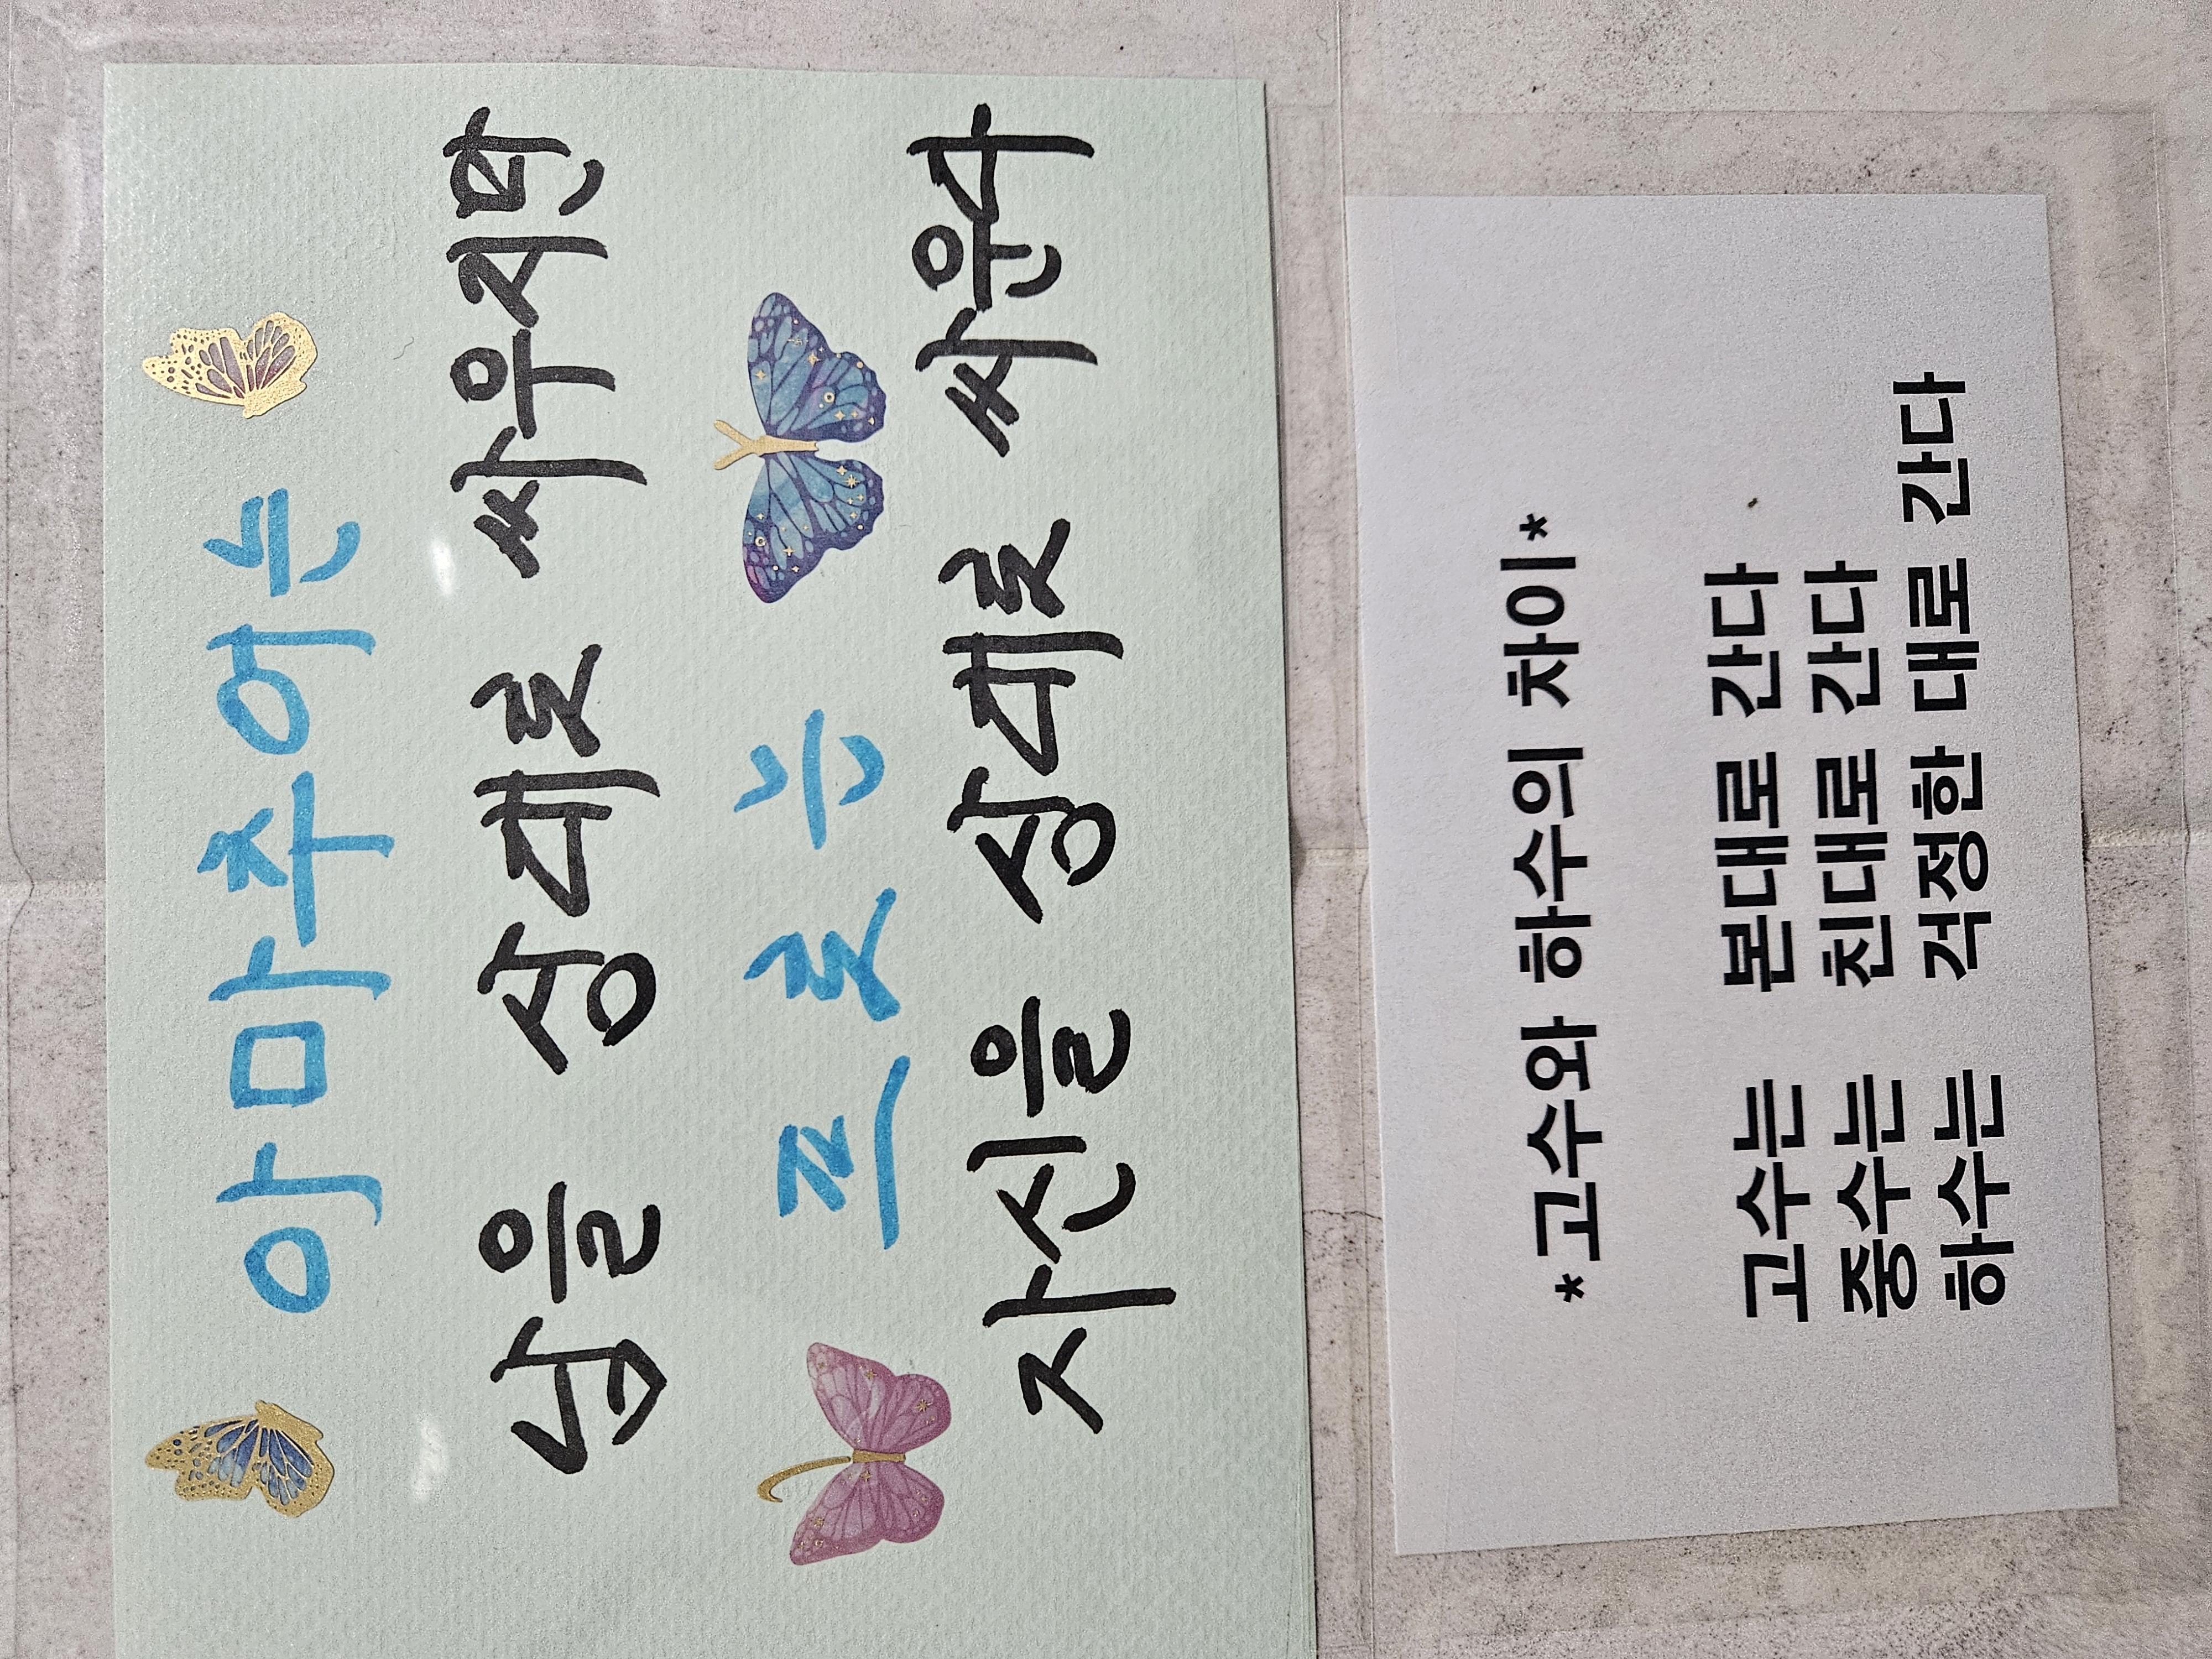 아마추어는
남을 상대로 싸우지만
프로는
자신을 상대로 싸운다
*고수와 하수의 차이*
고수는 본대로 간다
중수는 친대로 간다
하수는 걱정한 대로 간다